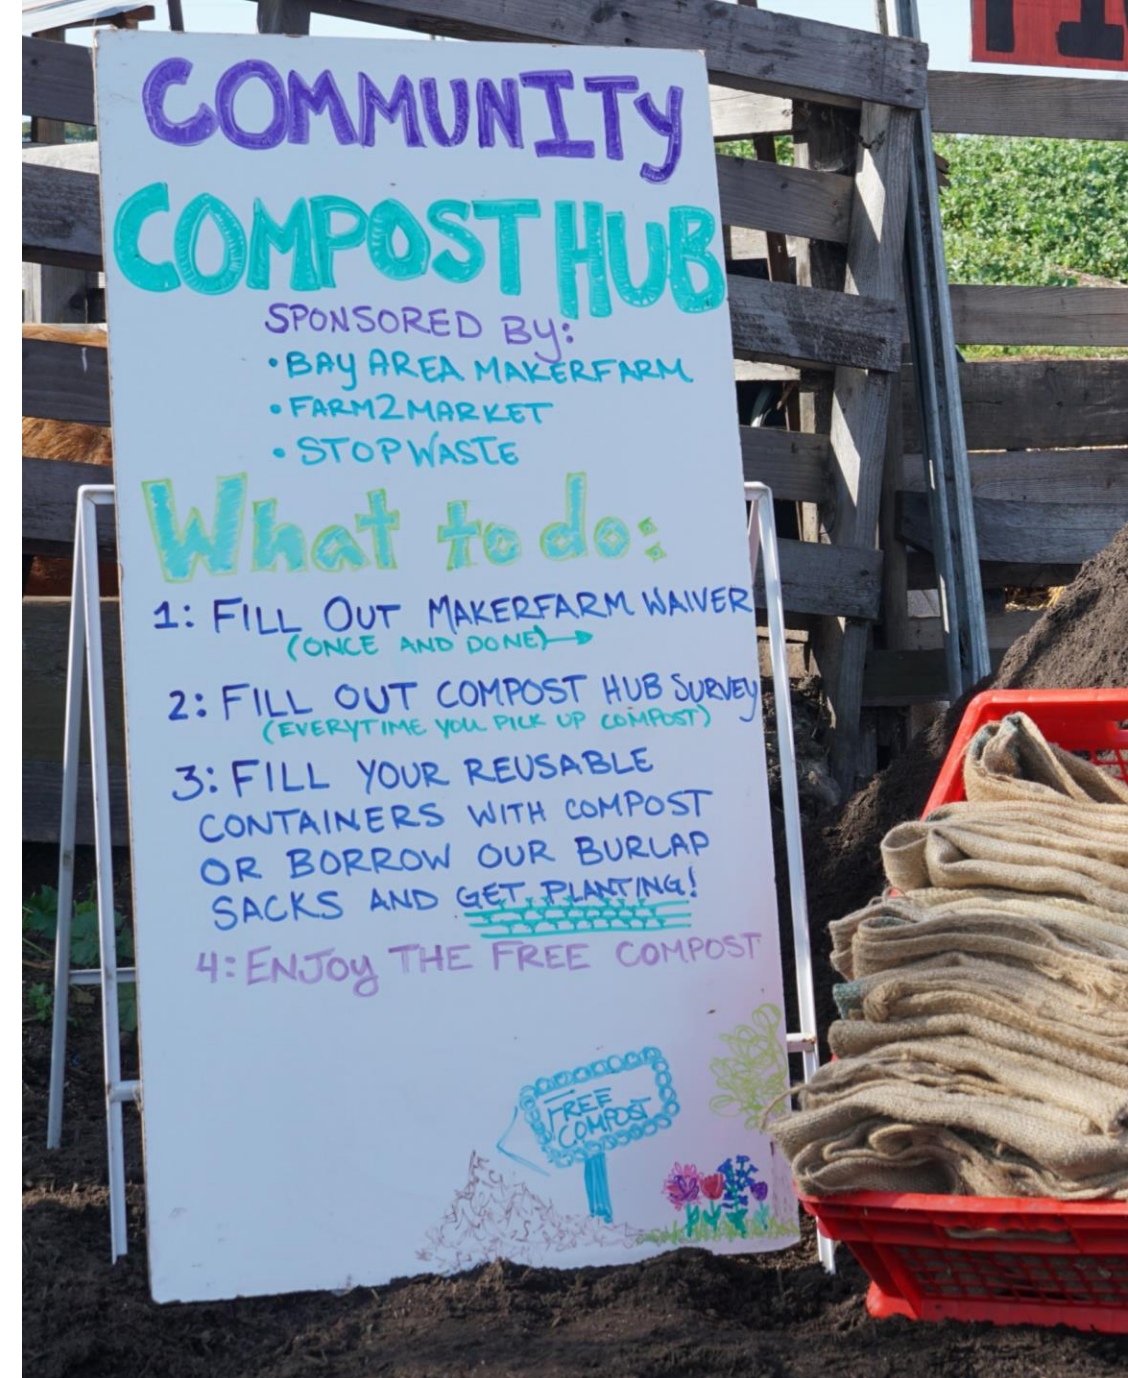 COMMUNITY
COMPOST HUB
SPONSORED By:
• BAY AREA MAKERFARM
• FARM2MARKET
• STOPWASTE
What to do:
1: FILL OUT MAKERFARM WAIVER
(ONCE AND DONE)→
2: FILL OUT COMPOST HUB SURVEY
(EVERYTIME YOU PICK UP COMPOST)
3: FILL YOUR REUSABLE
CONTAINERS WITH COMPOST
OR BORROW OUR BURLAP
SACKS AND GET PLANTING!
4: ENJOY THE FREE COMPOST
FREE
COMPOST